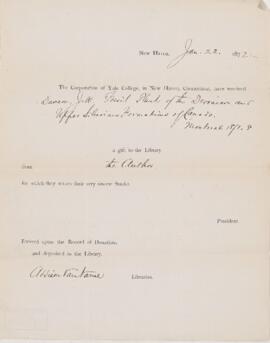 New Haven, Jan. 22. 1872
The Corporation of Yale College, in New Haven, Connecticut, have received
Dawson, J. W. Fossil Plants of the Devonian and
Upper Silurian Formations of Canada.
Montreal 1871. 8
a gift to the Library
from the Author
for which they return their very sincere thanks
President.
Entered upon the Record of Donations,
and deposited in the Library.
Addison Van Name
Librarian.